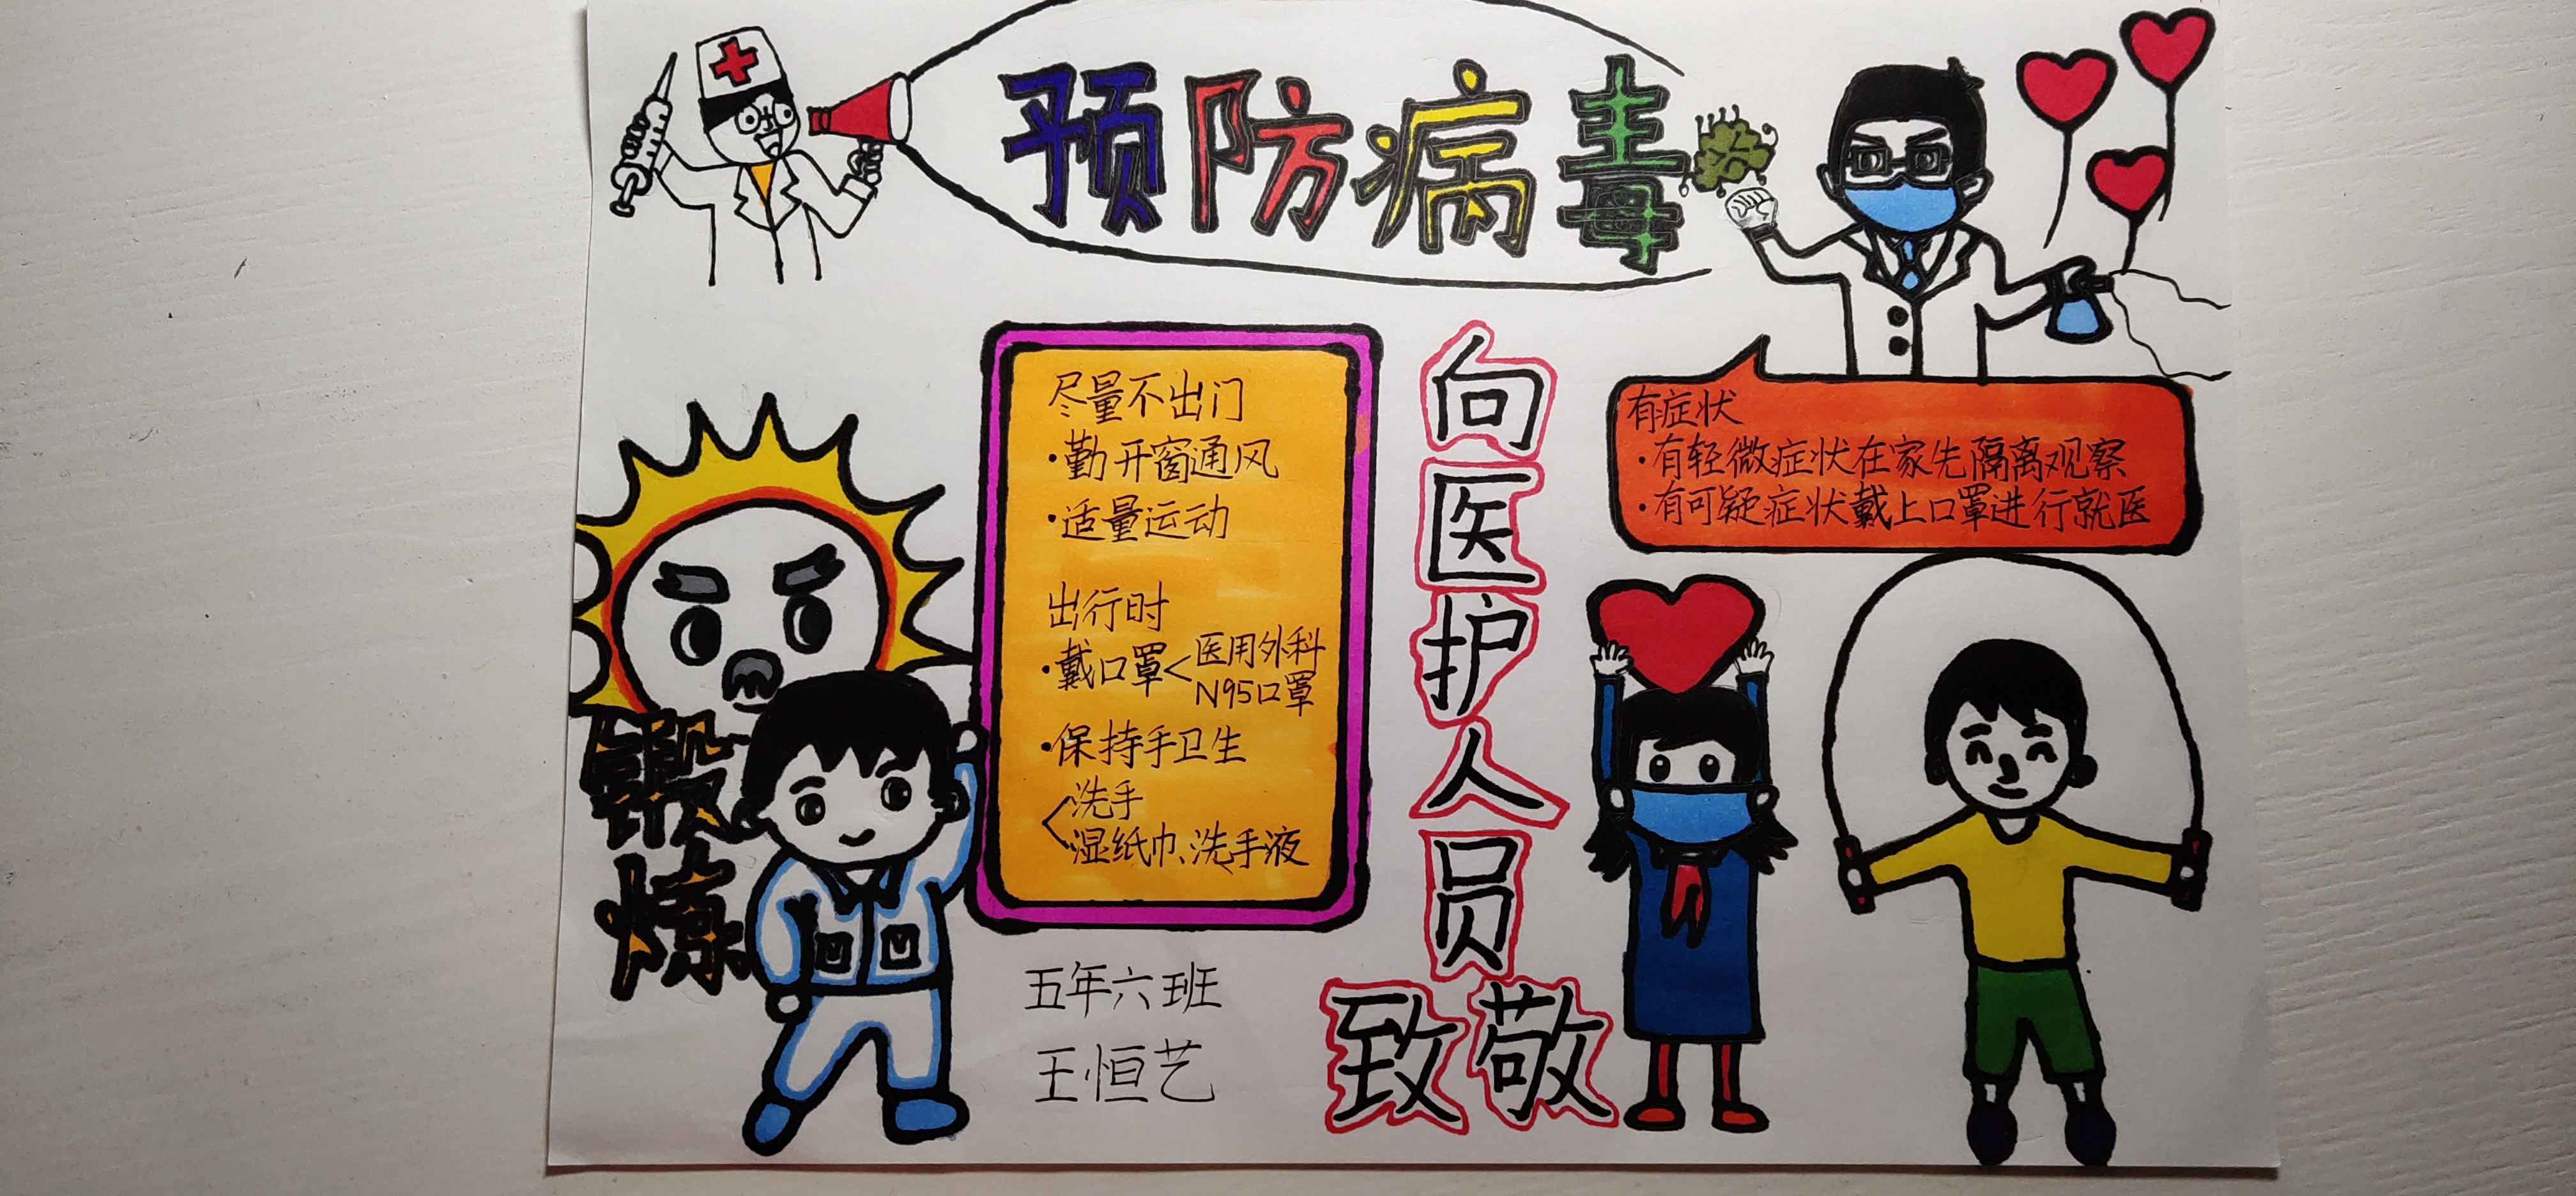 预防病毒
尽量不出门
·勤开窗通风
·适量运动
出行时
·戴口罩<医用外科
N95口罩
·保持手卫生
<洗手
湿纸巾、洗手液
向医护人员
致敬
有症状
·有轻微症状在家先隔离观察
·有可疑症状戴上口罩进行就医
锻炼
五年六班
王恒艺